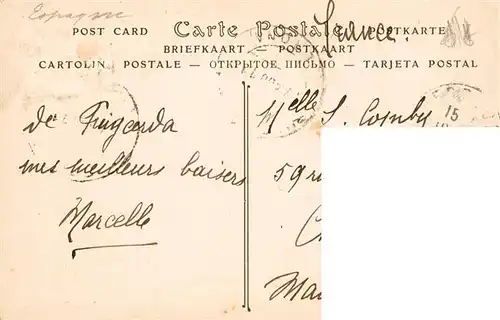 Espagne
France.
POST CARD Carte Postale POCTKARTE
BRIEFKAART — POSTKAART
CARTOLINA POSTALE — ОТКРЫТОЕ ПИСЬМО — TARJETA POSTAL
de Puigcerda
mes meilleurs baisers
Marcelle
Melle S.
15
59